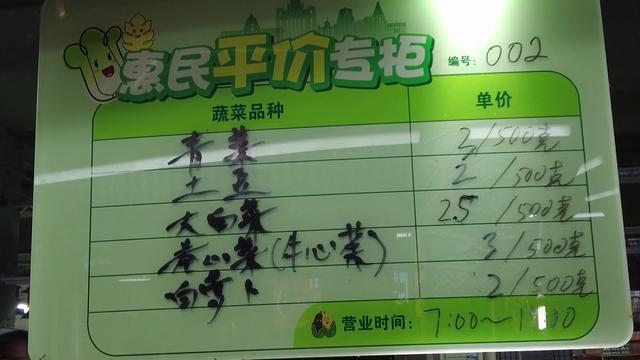 惠民平价专柜 编号: 002
蔬菜品种 单价
青菜 2/500克
土豆 2/500克
大白菜 25/500克
卷心菜(牛心菜) 3/500克
白萝卜 2/500克
营业时间: 7:00～